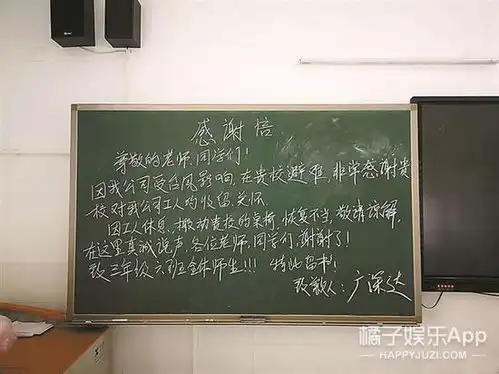 感谢信
尊敬的老师、同学们！
因我公司受台风影响，在贵校避难，非常感谢贵
校对我公司工人的收留、关怀。
因工人休息，搬动贵校的桌椅，恢复不当，敬请谅解，
在这里真诚说声，各位老师、同学们，谢谢了！
致三年级六班全体师生!!! 特此留书！
致敬人：广深达
橘子娱乐App
HAPPYJUZI.COM